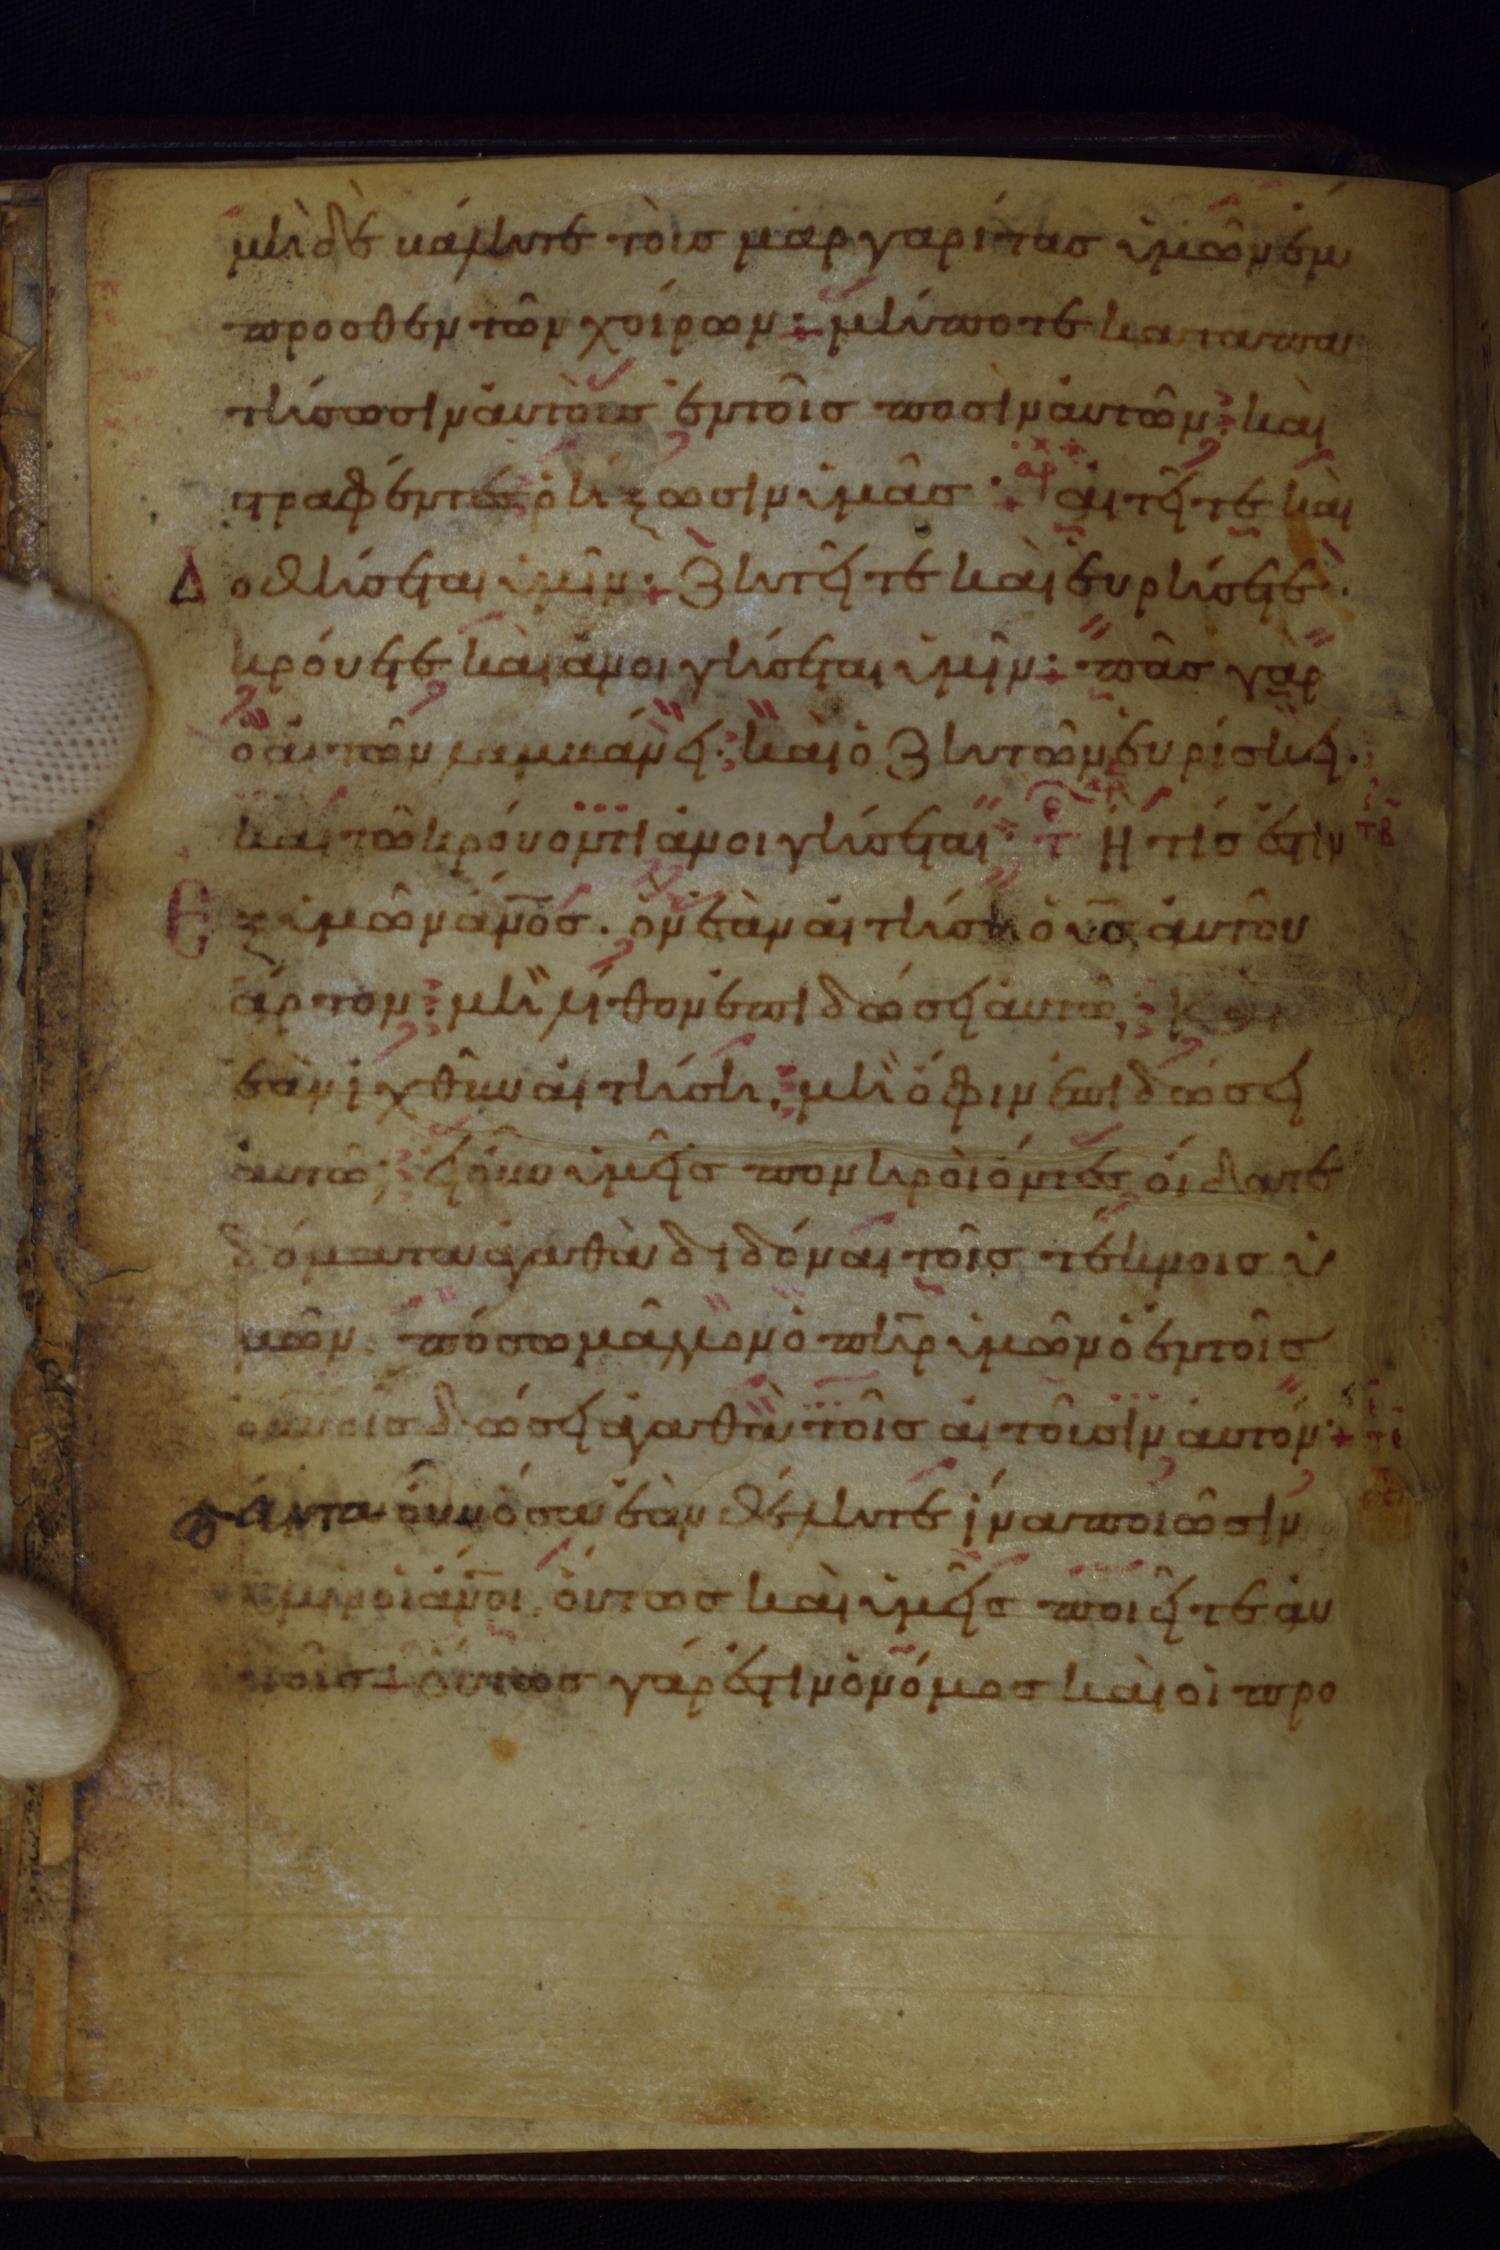 μὴδὲ βάλητε τοὺς μαργαρίτας ὑμῶν ἔμ
προσθεν τῶν χοίρων· μήποτε καταπα
τήσωσιν αὐτοὺς ἐν τοῖς ποσὶν αὐτῶν· καὶ
στραφέντες ῥήξωσιν ὑμᾶς· αρ αἰτεῖτε καὶ
Δοθήσεται ὑμῖν· ζητεῖτε καὶ εὑρήσετε·
κρούετε καὶ ἀνοιγήσεται ὑμῖν· πᾶς γὰρ
ὁ αἰτῶν λαμβάνει· καὶ ὁ ζητῶν εὑρίσκει·
καὶ τῶ κρούοντι ἀνοιγήσεται· τ Ἢ τίς ἐστιν
Ἐξ ὑμῶν ἄνος· ὃν ἐὰν αἰτήση ὁ υς αὐτοῦ
ἄρτον· μὴ λίθον ἐπιδώσει αὐτῶ; καὶ
ἐὰν ἰχθὺν αἰτήση, μὴ ὄφιν ἐπιδώσει
αὐτῶ; εἰ οὖν ὑμεῖς πονηροὶ ὄντες οἴδατε
δόματα ἀγαθὰ διδόναι τοῖς τέκνοις ὑ
μῶν. πόσω μᾶλλον ὁ πηρ ὑμῶν ὁ ἐν τοῖς
οὐνοις δώσει ἀγαθὰ τοῖς αἰτοῦσιν αὐτόν·
πάντα οὖν ὅσα ἐὰν θέλητε ἵνα ποιῶσιν
ὑμῖν οἱ ἄνοι, οὕτως καὶ ὑμεῖς ποιεῖτε αὐ
τοῖς· οὗτος γάρ ἐστιν ὁ νόμος καὶ οἱ προ